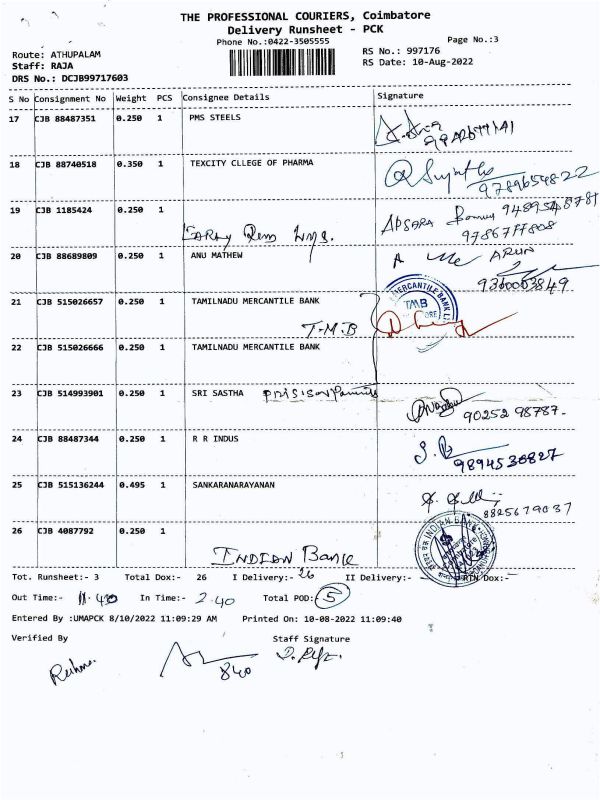 THE PROFESSIONAL COURIERS, Coimbatore
Delivery Runsheet - PCK
Phone No.:0422-3505555
Page No.:3
Route: ATHUPALAM
RS No.: 997176
Staff: RAJA
RS Date: 10-Aug-2022
DRS No.: DCJB99717603
S No Consignment No Weight PCS Consignee Details Signature
17 CJB 88487351 0.250 1 PMS STEELS
18 CJB 88740518 0.350 1 TEXCITY CLLEGE OF PHARMA
9789654822
19 CJB 1185424 0.250 1
APSARA
9786777808
20 CJB 88689809 0.250 1 ANU MATHEW
ARUN
9360063849
21 CJB 515026657 0.250 1 TAMILNADU MERCANTILE BANK
MERCANTILE BANK
TMB
T-M-B
22 CJB 515026666 0.250 1 TAMILNADU MERCANTILE BANK
23 CJB 514993901 0.250 1 SRI SASTHA
90252 98787.
24 CJB 88487344 0.250 1 R R INDUS
9894538827
25 CJB 515136244 0.495 1 SANKARANARAYANAN
8825679037
26 CJB 4087792 0.250 1
INDIAN Bank
INDIAN BANK
Tot. Runsheet:- 3 Total Dox:- 26 I Delivery:- 26 II Delivery:- RTN Dox:-
Out Time:- 11.430 In Time:- 2.40 Total POD:- 5
Entered By :UMAPCK 8/10/2022 11:09:29 AM Printed On: 10-08-2022 11:09:40
Verified By Staff Signature
840